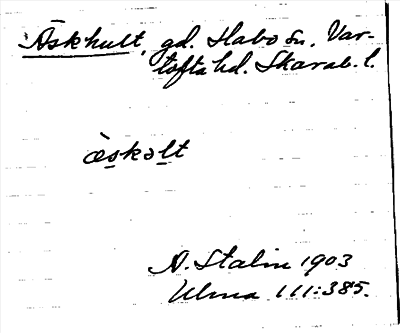 Äskhult, gd. Habo sn. Var-
tofta hd. Skarab. l.
æ̀skəlt
A. Stalin 1903
Ulma 111:385.